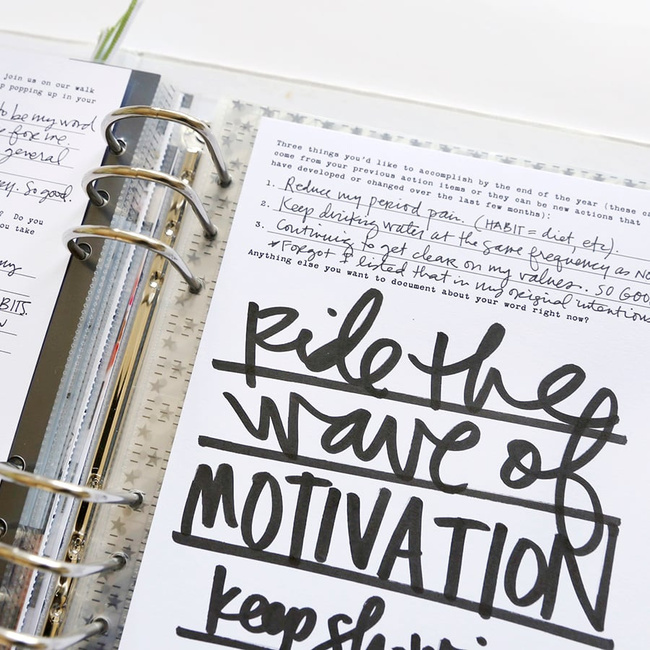 join us on our walk
popping up in your
to be my word
for me.
general
So good.
? Do you
you take
my
HABITS.
Three things you'd like to accomplish by the end of the year (these ca
come from your previous action items or they can be new actions that
have developed or changed over the last few months):
1. Reduce my period pain. (HABIT = diet, etc).
2. Keep drinking water at the same frequency as NO
3. Continuing to get clear on my values. SO GOO
*Forgot I listed that in my original intentions
Anything else you want to document about your word right now?
Ride the
wave of
MOTIVATION
keep